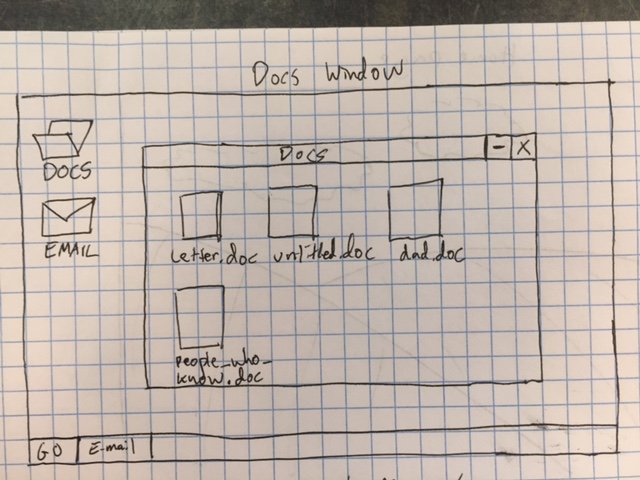 Docs Window
DOCS
EMAIL
Docs
- X
letter.doc untitled.doc dad.doc
people_who_
know.doc
GO E-mail